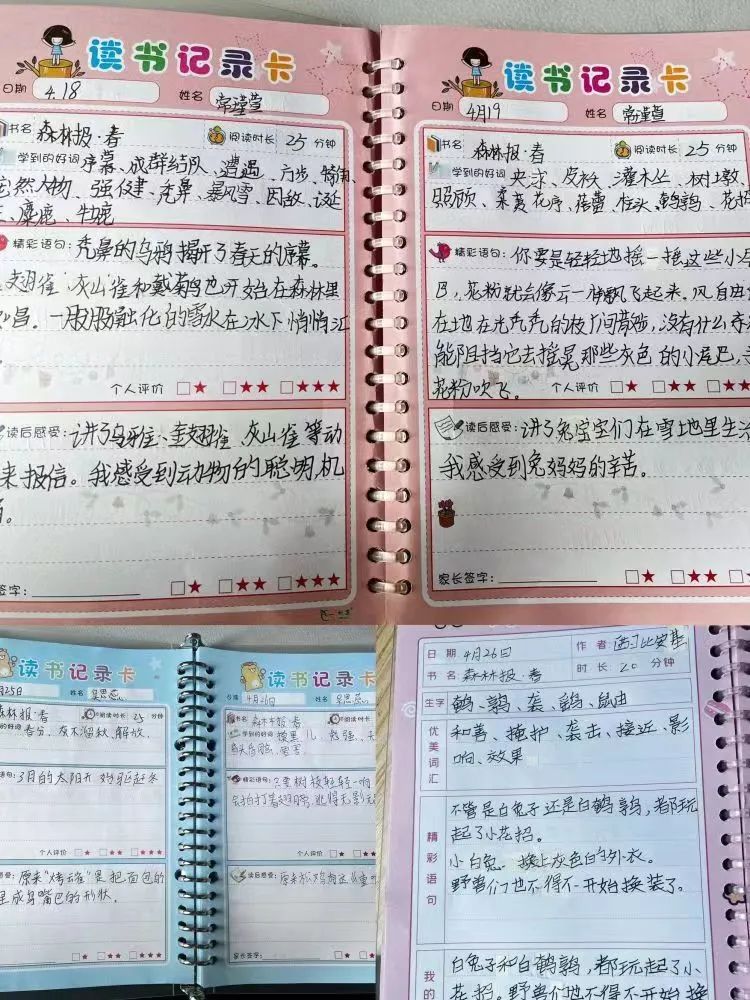 读书记录卡
日期 4.18 姓名 常瑾萱
书名 森林报·春 阅读时长 25 分钟
学到的好词 序幕、成群结队、遭遇、方步、
、强健、秃鼻、暴风雪、因故、诞
、麋鹿、
精彩语句:秃鼻的乌鸦揭开了春天的序幕。
翅雀、灰山雀和戴菊鸟也开始在森林里
昌。一股股融化的雪水在冰下悄悄江
个人评价 □★ □★★ □★★★
读后感受:讲了乌鸦、金翅雀、灰山雀等动
来报信。我感受到动物的聪明,机
家长签字: □★ □★★ □★★★
读书记录卡
日期 4月19 姓名 常瑾萱
书名 森林报·春 阅读时长 25 分钟
学到的好词 央求、皮袄、灌木丛、树墩
照顾、柔荑花序、蓓蕾、枝头、鹌鹑、花
精彩语句:你要是轻轻地摇一摇这些小
巴,花粉就会像云一样飘飞起来。风自由
在地在光秃秃的枝丫间背驰,没有什么
能阻挡它去摇晃那些灰色的小尾巴,
花粉吹飞。 个人评价 □★ □★★ □
读后感受:讲了兔宝宝们在雪地里生
我感受到兔妈妈的辛苦。
家长签字: □★ □★★ □★
读书记录卡
月25日 姓名
森林报·春 阅读时长 25 分钟
的好词 春分、灰不溜秋、解放、
语句:3月的太阳开始驱赶冬
个人评价 □★ □★★ □★★★
感受:原来"烤云雀"是把面包的
是成鸟嘴巴的形状。
□★ □★★ □★★★
读书记录卡
日期 4月26日 姓名
书名 森林报·春 阅读时长 25 分钟
学到的好词
精彩语句: 树枝轻轻一响
拍打着翅膀,逃得无影无
个人评价 □★ □★★ □★
读后感受:原来松鸡
家长签字: □★ □★★ □★
日期 4月26日 作者
书名 森林报·春 时长 20 分钟
生字 鹌、鹑、袭、鹤、鼠由
优美词汇 和善、掩护、袭击、接近、影
响、效果
精彩语句 不管是白兔子还是白鹌鹑,都玩
起了小花招。
小白兔 换上灰色白的外衣。
野兽们也不得不开始换装了。
我的 白兔子和白鹌鹑,都玩起了小
花招。野兽们也不得不开始换